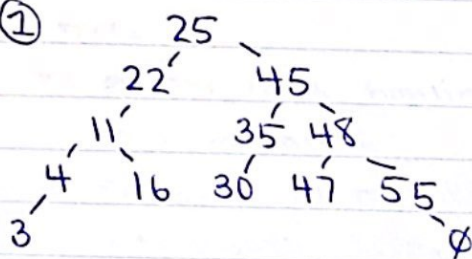 ① 25
22 45
11 35 48
4 16 30 47 55
3 ∅